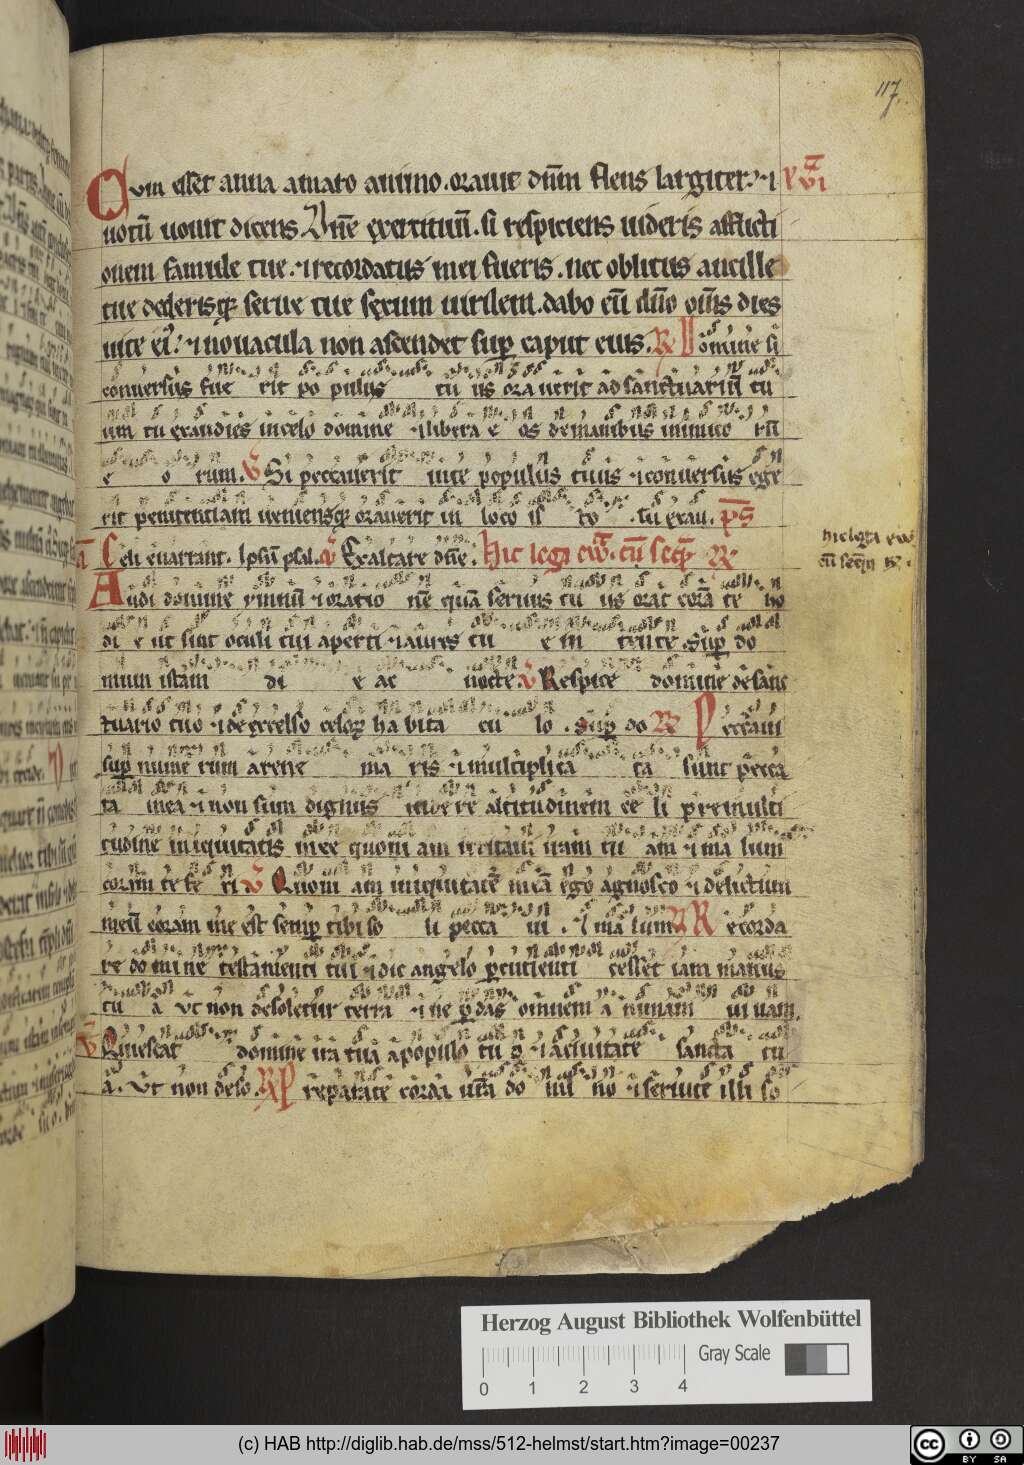 117.
Cum esset anna amaro animo. orauit dñm flens largiter. ⁊
uotũ uouit dicens. Dñe exercituũ. si respiciens uideris afflicti
onem famule tue. ⁊ recordatus mei fueris. nec oblitus ancille
tue dederisq; serue tue sexum uirilem. dabo eũ dño om̃s dies
uite ei'. ⁊ nouacula non ascendet sup caput eius. R Domine si
conuersus fue rit po pulus tu us ora uerit ad sanctuariũ tu
um tu exaudies in celo domine ⁊ libera e os de manibus inimico rũ
e o rum. V Si peccauerit in te populus tuus ⁊ conuersus ege
rit penitentiam ueniensq; orauerit in loco is to. Tu exau. ps
Celi enarrant. Ipsũ psal. V Exaltare dñe. Hic legi ew̃. cũ seq̃ R
Audi domine ymnũ ⁊ oratio nẽ quã seruus tu us orat corã te ho
di e ut sint oculi tui aperti ⁊ aures tu e in tente. Sup do
mum istam di e ac nocte. V Respice domine de sanc
tuario tuo ⁊ de excelso celoꝝ ha bita cu lo. Sup do R Peccaui
sup nume rum arene ma ris ⁊ multiplica ta sunt pecca
ta mea ⁊ non sum dignus uide re altitudinem ce li pre multi
tudine iniquitatis mee quoni am irritaui iram tu am ⁊ ma lum
coram te fe ci V Quoni am iniquitatẽ meã ego agnosco ⁊ delictum
meũ coram me est semp tibi so li pecca ui. ⁊ ma lum R Recorda
re domine testamenti tui ⁊ dic angelo percutienti cesset iam manus
tu a Vt non desoletur terra ⁊ ne perdas omnem a nimam ui uam.
V Quiescat domine ira tua a populo tu o ⁊ a ciuitate sancta tu
a. Vt non deso. R Preparate corda ur̃a do mi no ⁊ seruite illi so
hic legi̅ta ew̃
cũ seq̃
Herzog August Bibliothek Wolfenbüttel
Gray Scale
0 1 2 3 4
(c) HAB http://diglib.hab.de/mss/512-helmst/start.htm?image=00237
cc BY SA